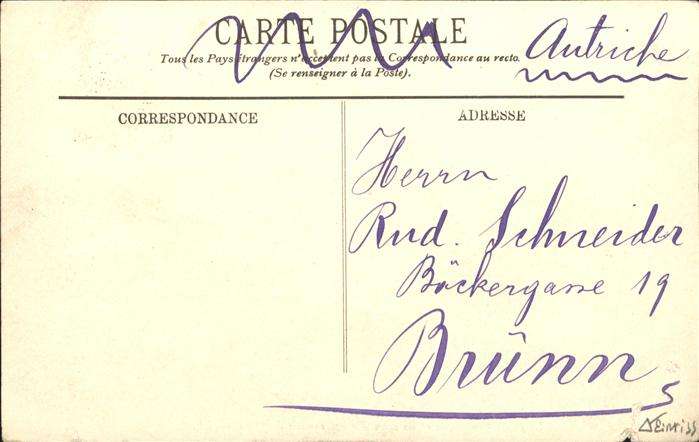 CARTE POSTALE
Tous les Pays étrangers n'acceptent pas la Correspondance au recto.
(Se renseigner à la Poste).
Autriche
CORRESPONDANCE
ADRESSE
Herrn
Rud. Schneider
Bäckergasse 19
Brünn